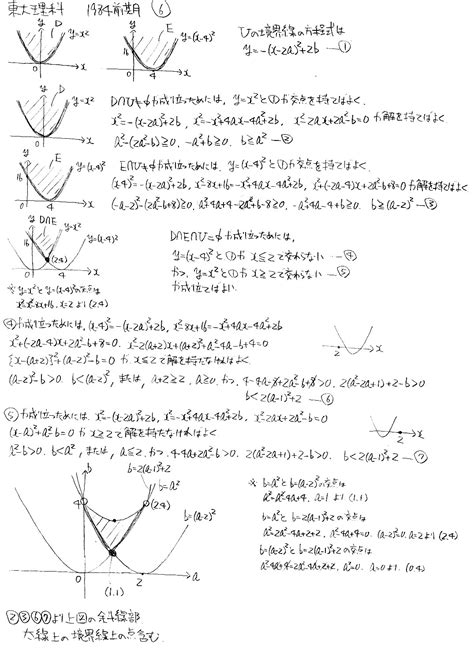 東大理科 1984前期 ⑥
y
D
y=x²
0
x
y
E
y=(x-4)²
16
0
4
x
Uの境界線の方程式は
y=-(x-2a)²+2b ―①
y
D
y=x²
0
x
D∩U≠φが成り立つためには、y=x²と①が交点を持てばよく
x²=-(x-2a)²+2b, x²=-x²+4ax-4a²+2b, x²-2ax+2a²-b=0が解を持てばよく
a²-(2a²-b)≧0, -a²+b≧0, b≧a² ―②
y
E
y=(x-4)²
16
0
4
x
E∩U≠φが成り立つためには、y=(x-4)²と①が交点を持てばよく
(x-4)²=-(x-2a)²+2b, x²-8x+16=-x²+4ax-4a²+2b, x²+(-2a-4)x+2a²-b+8=0が解を持てばよく
(-a-2)²-(2a²-b+8)≧0, a²+4a+4-2a²+b-8≧0, -a²+4a-4+b≧0, b≧(a-2)² ―③
y
D∩E
y=x²
y=(x-4)²
16
(2,4)
0
4
x
D∩E∩U=φが成り立つためには、
y=(x-4)²と①がx≦2で交わらない ―④
かつ、y=x²と①がx≧2で交わらない ―⑤
が成り立てばよい
※ y=x²とy=(x-4)²の交点は
x²=x²-8x+16, x=2より(2,4)
④が成り立つためには、(x-4)²=-(x-2a)²+2b, x²-8x+16=-x²+4ax-4a²+2b
x²+(-2a-4)x+2a²-b+8=0, x²-2(a+2)x+(a+2)²+a²-4a-b+4=0
{x-(a+2)}²+(a-2)²-b=0がx≦2で解を持たなければよく
(a-2)²-b>0, b<(a-2)², または, a+2≧2, a≧0, かつ, 4-4a-8+2a²-b+8>0, 2(a²-2a+1)+2-b>0
b<2(a-1)²+2 ―⑥
2
⑤が成り立つためには、x²=-(x-2a)²+2b, x²=-x²+4ax-4a²+2b, x²-2ax+2a²-b=0
(x-a)²+a²-b=0がx≧2で解を持たなければよく
a²-b>0, b<a², または, a≦2, かつ, 4-4a+2a²-b>0, 2(a²-2a+1)+2-b>0, b<2(a-1)²+2 ―⑦
2
b
b=2(a-1)²+2
b=a²
4
(2,4)
b=(a-2)²
0
2
a
(1,1)
※ b=a²とb=(a-2)²の交点は
a²=a²-4a+4, a=1より(1,1)
b=a²とb=2(a-1)²+2の交点は
a²=2a²-4a+2+2, a²-4a+4=0, (a-2)²=0, a=2より(2,4)
b=(a-2)²とb=2(a-1)²+2の交点は
a²-4a+4=2a²-4a+2+2, a²=0, a=0より(0,4)
②③⑥⑦より上図の斜線部
太線上の境界線上の点含む